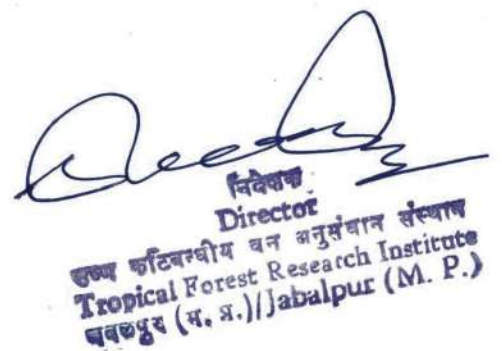 निदेशक
Director
उष्ण कटिबन्धीय वन अनुसंधान संस्थान
Tropical Forest Research Institute
जबलपुर (म. प्र.)/Jabalpur (M. P.)